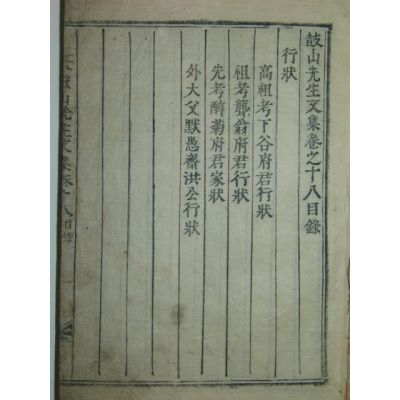 鼓山先生文集卷之十八目錄
行狀
高祖考下谷府君行狀
祖考聾翁府君行狀
先考醉菊府君家狀
外大父默愚齋洪公行狀
鼓山先生文集卷十八目錄